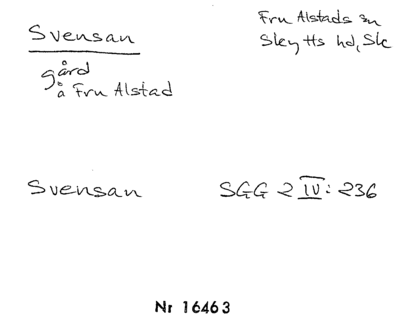 Svensan
Fru Alstads sn
Skytts hd, Sk
gård
å Fru Alstad
Svensan
SGG 2 IV: 236
Nr 16463